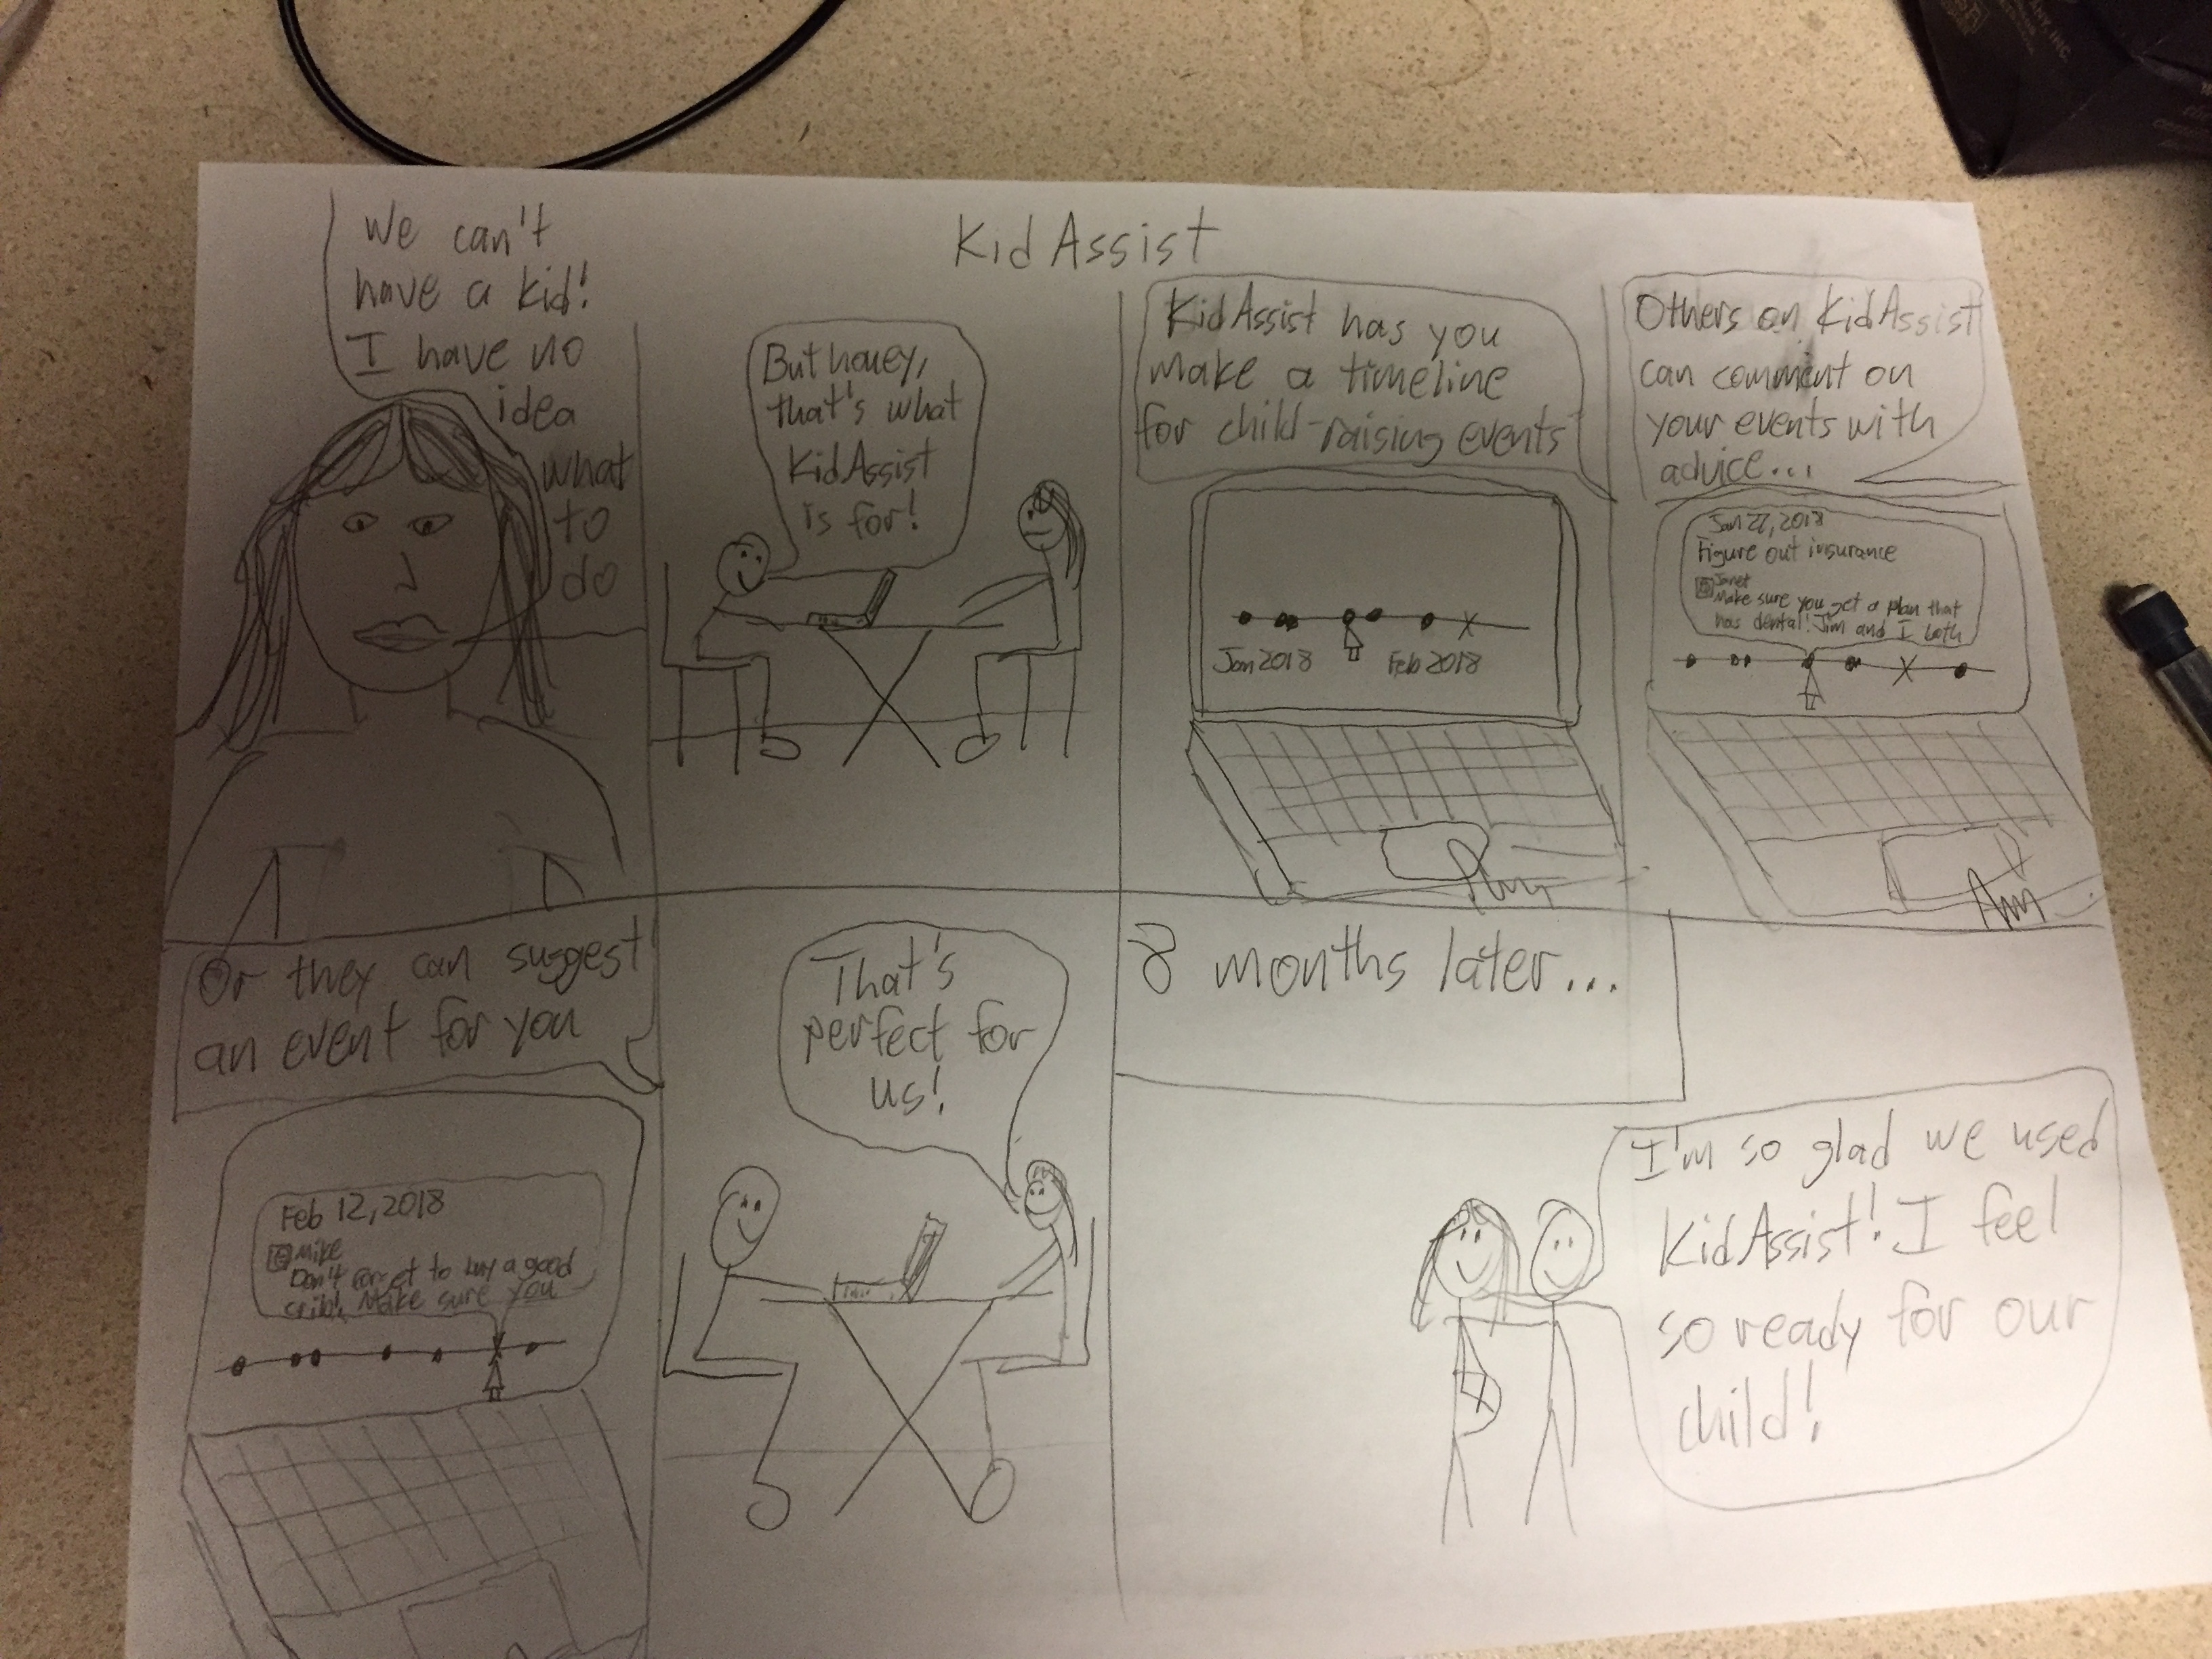 Kid Assist
We can't
have a kid!
I have no
idea
what
to
do
But honey,
that's what
Kid Assist
is for!
Kid Assist has you
make a timeline
for child-raising events
Jan 2018
Feb 2018
Others on Kid Assist
can comment on
your events with
advice...
Jan 22, 2018
Figure out insurance
Janet
Make sure you get a plan that
has dental! Jim and I both
Or they can suggest
an event for you
Feb 12, 2018
Mike
Don't forget to buy a good
crib! Make sure you
That's
perfect for
us!
8 months later...
I'm so glad we used
Kid Assist! I feel
so ready for our
child!